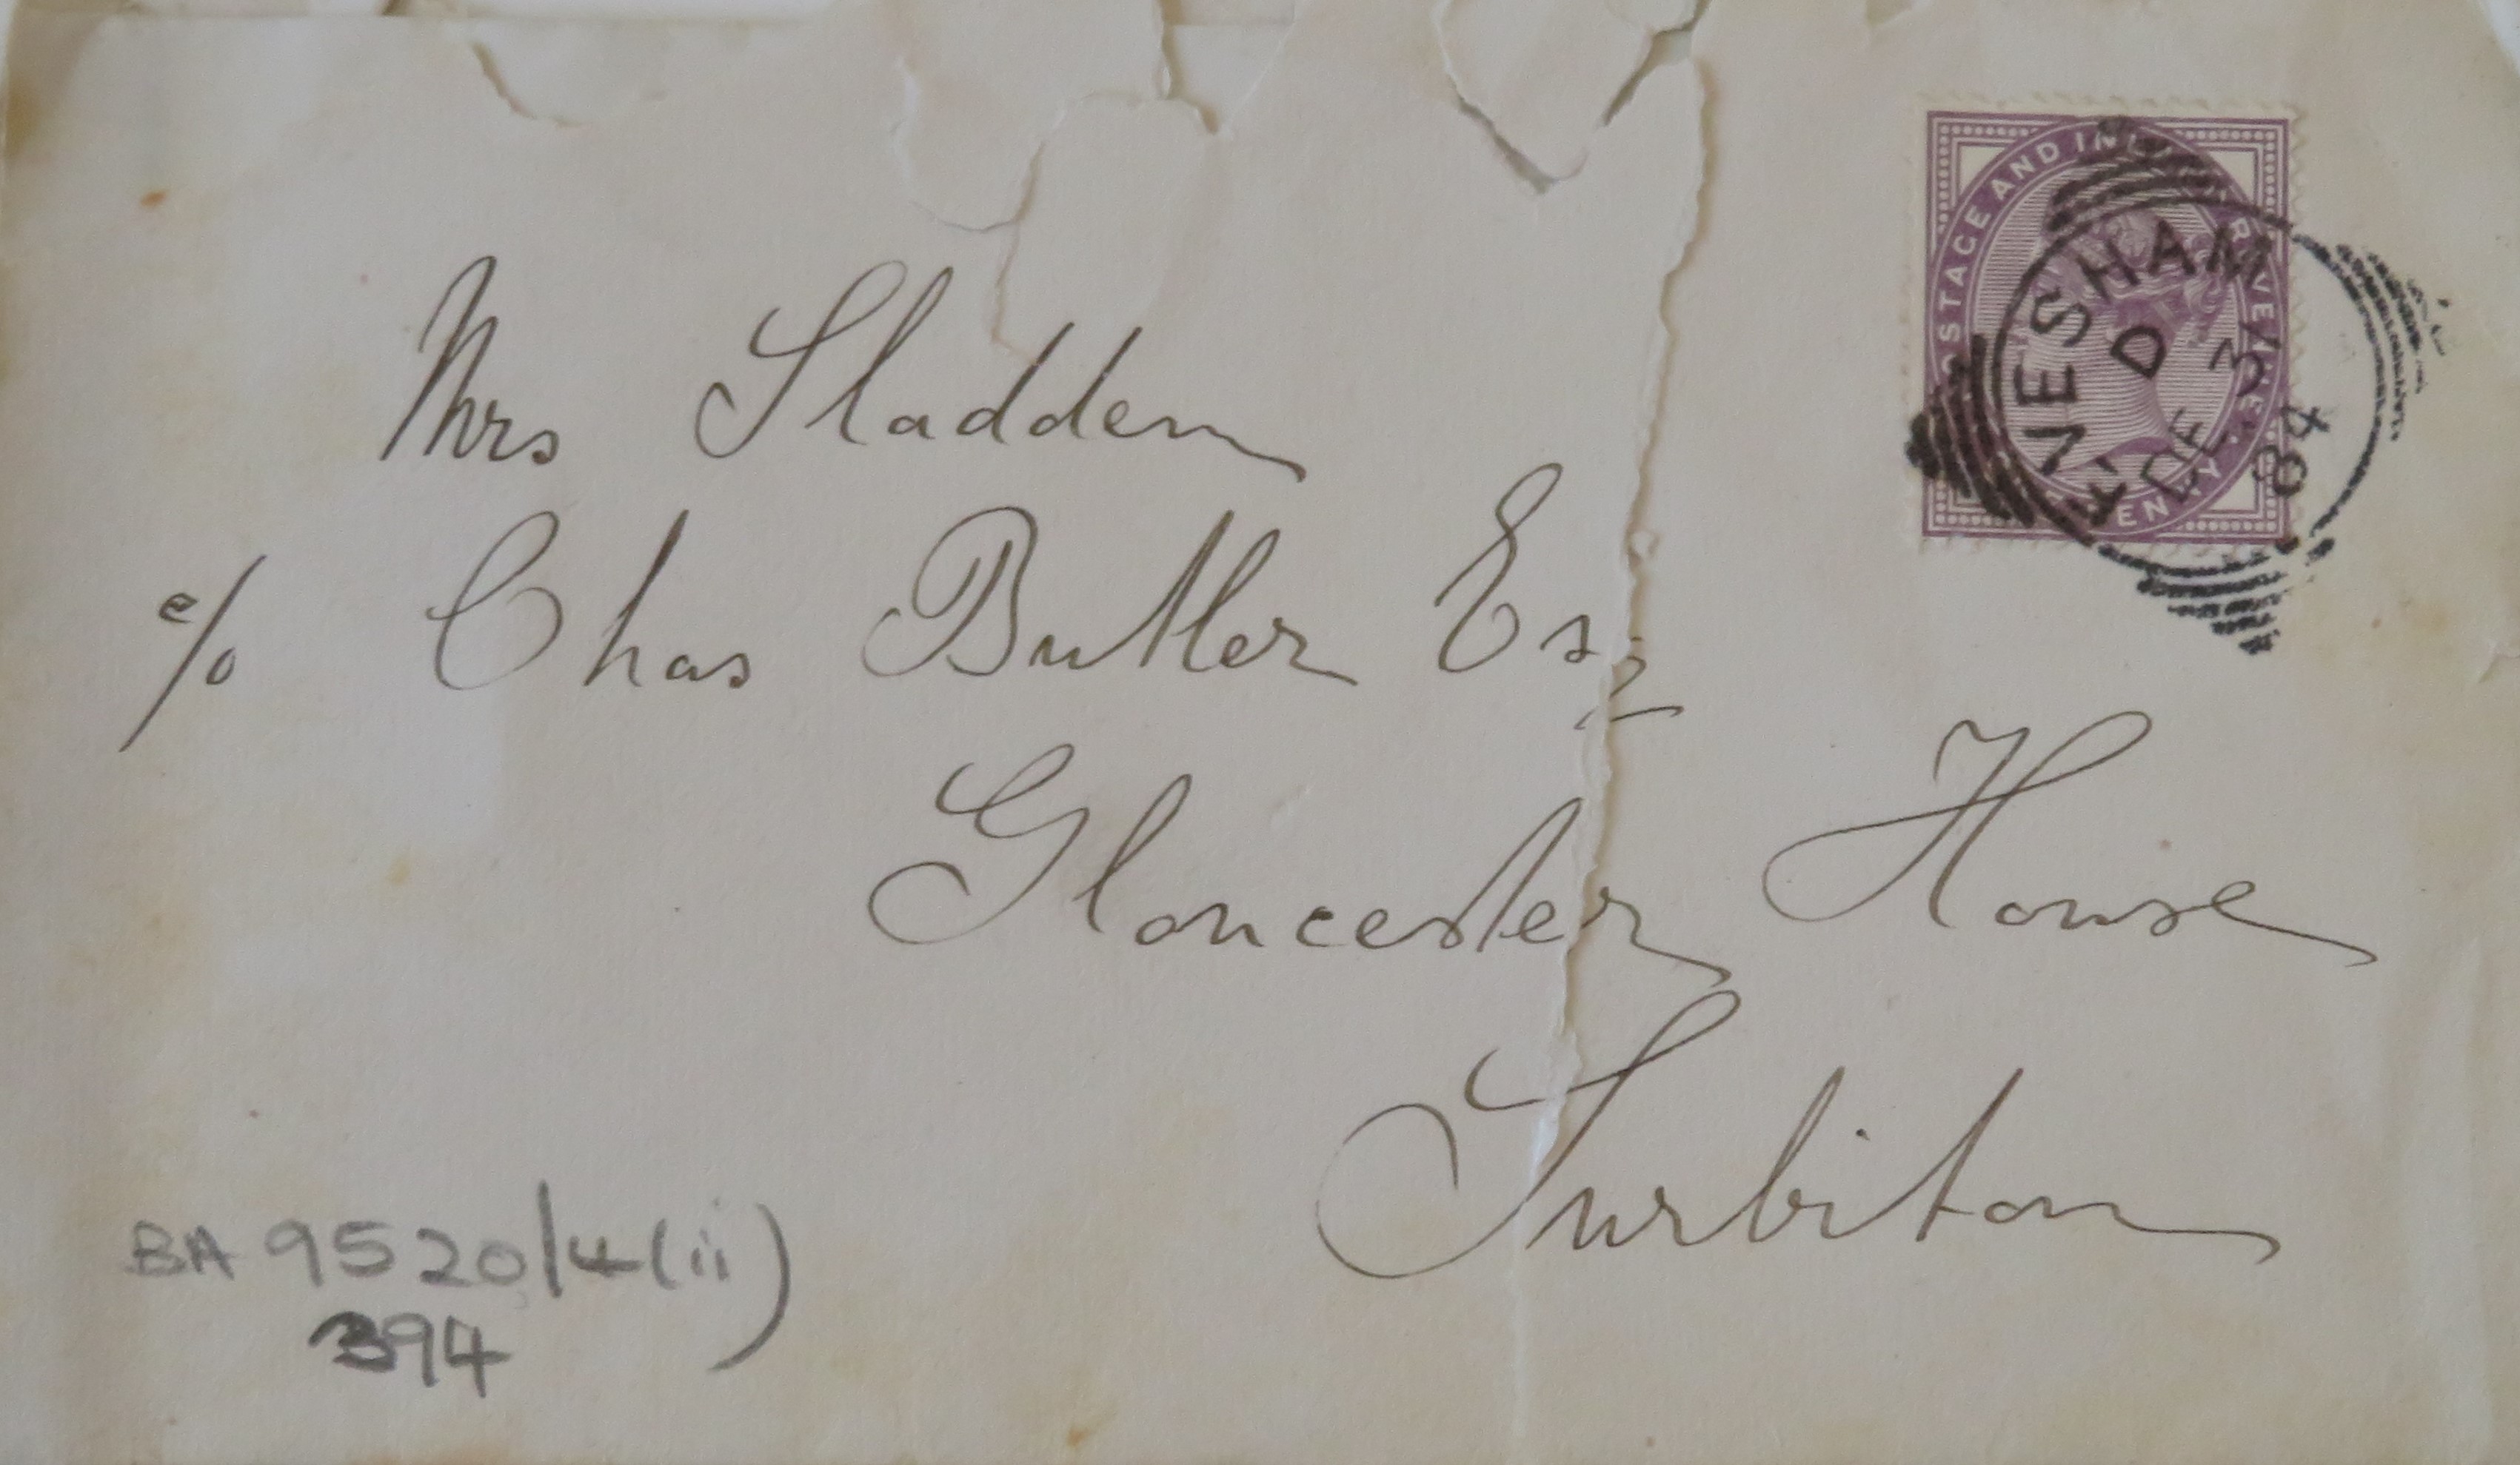 Mrs Sladden
c/o Chas Butler Esq
Gloucester House
Surbiton
POSTAGE AND INLAND REVENUE
ONE PENNY
EVESHAM
D
DE 31
84
BA 9520/4(ii)
394